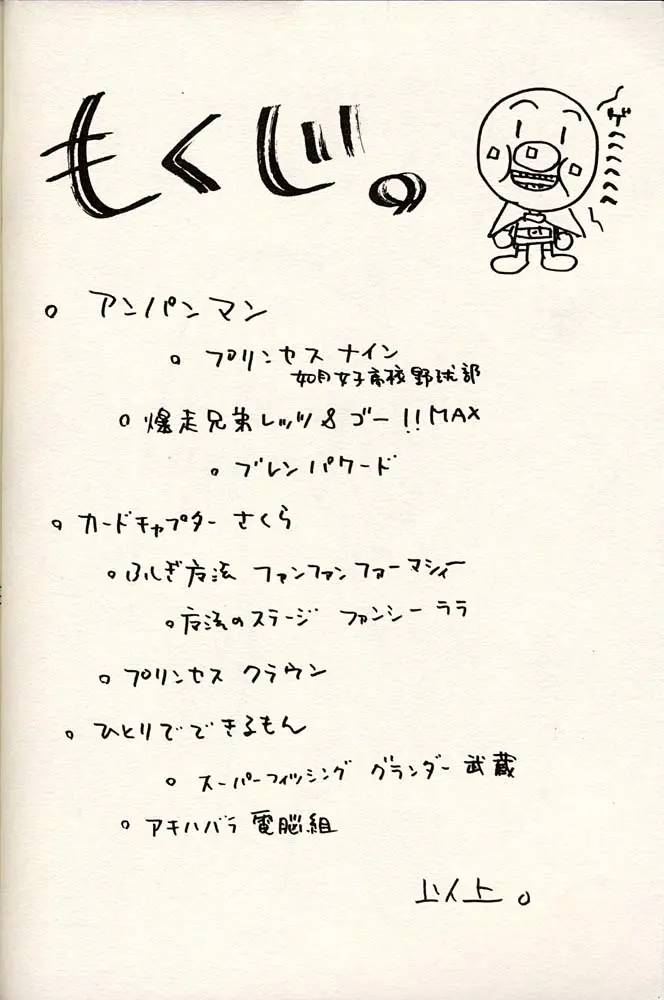 もくじ。
ゲへへへへへ
。アンパンマン
。プリンセス ナイン
如月女子高校野球部
。爆走兄弟レッツ&ゴー!!MAX
。ブレンパワード
。カードキャプター さくら
。ふしぎ魔法 ファンファンファーマシィー
。魔法のステージ ファンシー ララ
。プリンセス クラウン
。ひとりでできるもん
。スーパーフィッシング グランダー 武蔵
。アキハバラ 電脳組
以上。